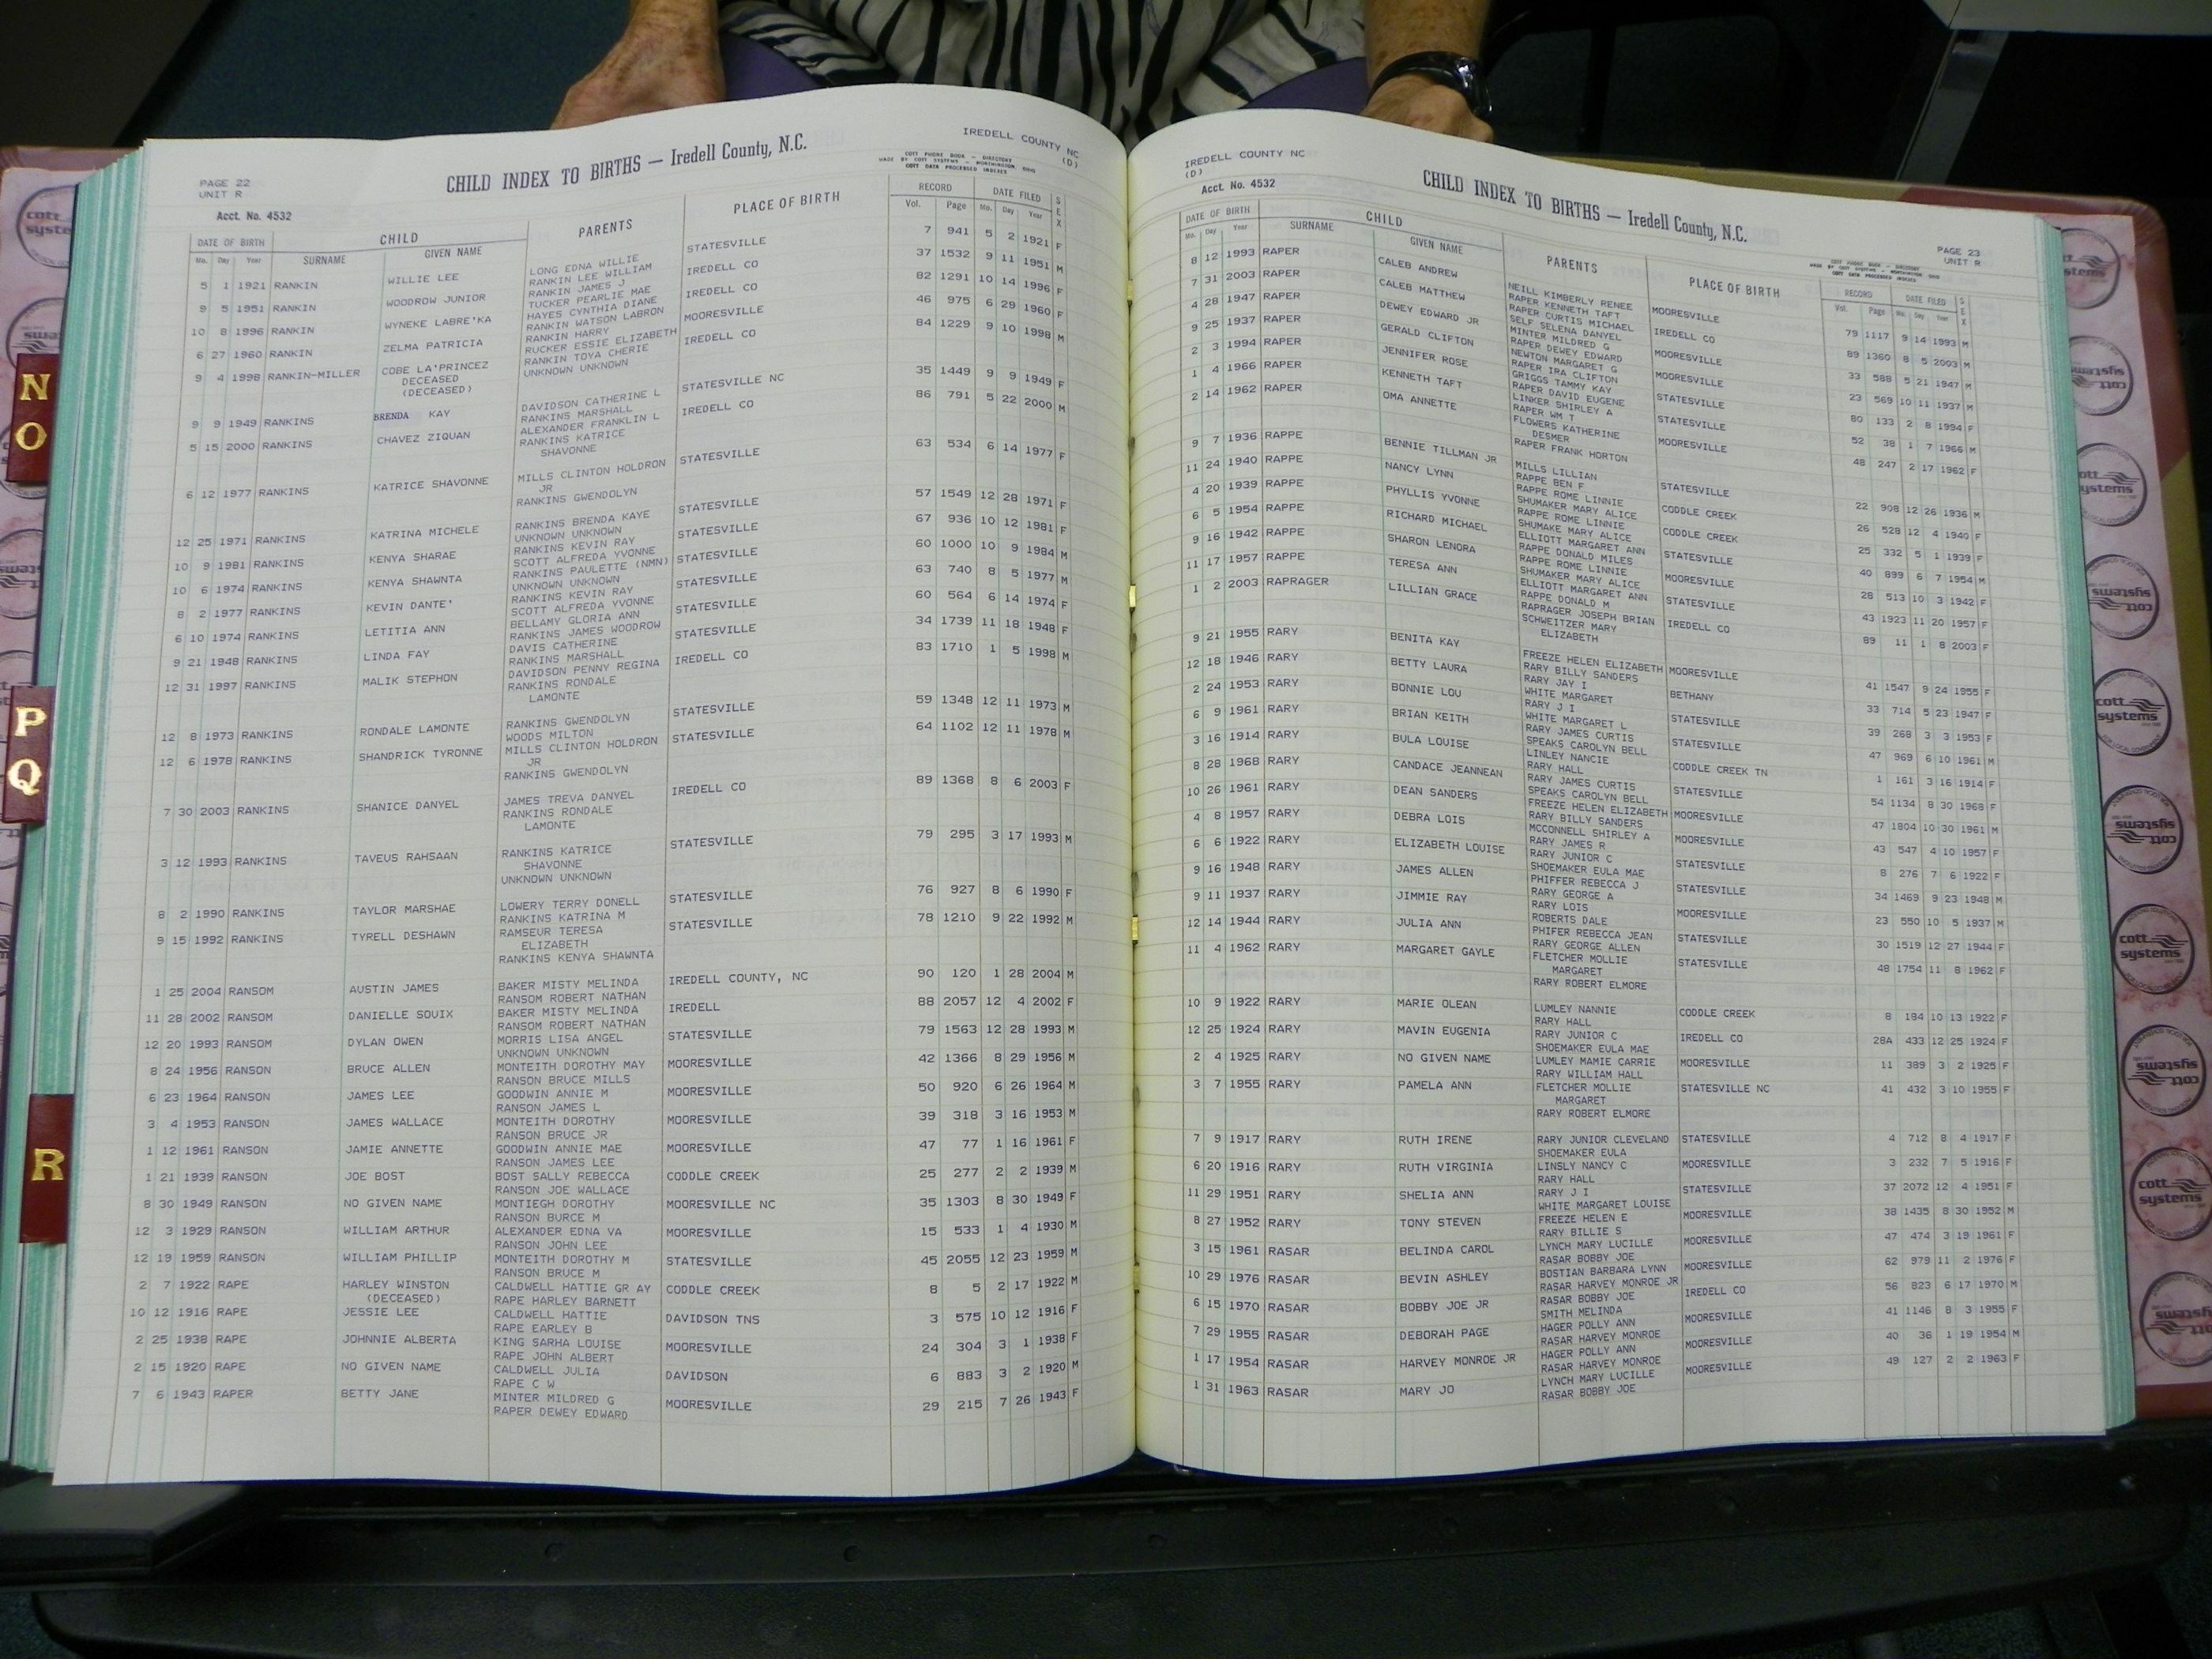 PAGE 22
UNIT R
CHILD INDEX TO BIRTHS — Iredell County, N.C.
IREDELL COUNTY NC
(D)
COTT PHONE BOOK — DIRECTORY
MADE BY COTT SYSTEMS — WORTHINGTON, OHIO
COTT DATA PROCESSED INDEXES
Acct. No. 4532
DATE OF BIRTH CHILD PARENTS PLACE OF BIRTH RECORD DATE FILED SEX
Mo. Day Year SURNAME GIVEN NAME Vol. Page Mo. Day Year
5 1 1921 RANKIN WILLIE LEE LONG EDNA WILLIE STATESVILLE 7 941 5 2 1921 F
RANKIN LEE WILLIAM
9 5 1951 RANKIN WOODROW JUNIOR RANKIN JAMES J IREDELL CO 37 1532 9 11 1951 M
TUCKER PEARLIE MAE
10 8 1996 RANKIN WYNEKE LABRE'KA HAYES CYNTHIA DIANE IREDELL CO 82 1291 10 14 1996 F
RANKIN WATSON LABRON
6 27 1960 RANKIN ZELMA PATRICIA RANKIN HARRY MOORESVILLE 46 975 6 29 1960 F
RUCKER ESSIE ELIZABETH
9 4 1998 RANKIN-MILLER COBE LA'PRINCEZ RANKIN TOYA CHERIE IREDELL CO 84 1229 9 10 1998 M
DECEASED UNKNOWN UNKNOWN
(DECEASED)
9 9 1949 RANKINS BRENDA KAY DAVIDSON CATHERINE L STATESVILLE NC 35 1449 9 9 1949 F
RANKINS MARSHALL
5 15 2000 RANKINS CHAVEZ ZIQUAN ALEXANDER FRANKLIN L IREDELL CO 86 791 5 22 2000 M
RANKINS KATRICE
SHAVONNE
6 12 1977 RANKINS KATRICE SHAVONNE MILLS CLINTON HOLDRON STATESVILLE 63 534 6 14 1977 F
JR
RANKINS GWENDOLYN
12 25 1971 RANKINS KATRINA MICHELE RANKINS BRENDA KAYE STATESVILLE 57 1549 12 28 1971 F
UNKNOWN UNKNOWN
10 9 1981 RANKINS KENYA SHARAE RANKINS KEVIN RAY STATESVILLE 67 936 10 12 1981 F
SCOTT ALFREDA YVONNE
10 6 1974 RANKINS KENYA SHAWNTA RANKINS PAULETTE (NMN) STATESVILLE 60 1000 10 9 1984 M
UNKNOWN UNKNOWN
8 2 1977 RANKINS KEVIN DANTE' RANKINS KEVIN RAY STATESVILLE 63 740 8 5 1977 M
SCOTT ALFREDA YVONNE
6 10 1974 RANKINS LETITIA ANN BELLAMY GLORIA ANN STATESVILLE 60 564 6 14 1974 F
RANKINS JAMES WOODROW
9 21 1948 RANKINS LINDA FAY DAVIS CATHERINE STATESVILLE 34 1739 11 18 1948 F
RANKINS MARSHALL
12 31 1997 RANKINS MALIK STEPHON DAVIDSON PENNY REGINA IREDELL CO 83 1710 1 5 1998 M
RANKINS RONDALE
LAMONTE
12 8 1973 RANKINS RONDALE LAMONTE RANKINS GWENDOLYN STATESVILLE 59 1348 12 11 1973 M
WOODS MILTON
12 6 1978 RANKINS SHANDRICK TYRONNE MILLS CLINTON HOLDRON STATESVILLE 64 1102 12 11 1978 M
JR
RANKINS GWENDOLYN
7 30 2003 RANKINS SHANICE DANYEL JAMES TREVA DANYEL IREDELL CO 89 1368 8 6 2003 F
RANKINS RONDALE
LAMONTE
3 12 1993 RANKINS TAVEUS RAHSAAN RANKINS KATRICE STATESVILLE 79 295 3 17 1993 M
SHAVONNE
UNKNOWN UNKNOWN
8 2 1990 RANKINS TAYLOR MARSHAE LOWERY TERRY DONELL STATESVILLE 76 927 8 6 1990 F
RANKINS KATRINA M
9 15 1992 RANKINS TYRELL DESHAWN RAMSEUR TERESA STATESVILLE 78 1210 9 22 1992 M
ELIZABETH
RANKINS KENYA SHAWNTA
1 25 2004 RANSOM AUSTIN JAMES BAKER MISTY MELINDA IREDELL COUNTY, NC 90 120 1 28 2004 M
RANSOM ROBERT NATHAN
11 28 2002 RANSOM DANIELLE SOUIX BAKER MISTY MELINDA IREDELL 88 2057 12 4 2002 F
RANSOM ROBERT NATHAN
12 20 1993 RANSOM DYLAN OWEN MORRIS LISA ANGEL STATESVILLE 79 1563 12 28 1993 M
UNKNOWN UNKNOWN
8 24 1956 RANSON BRUCE ALLEN MONTEITH DOROTHY MAY MOORESVILLE 42 1366 8 29 1956 M
RANSON BRUCE MILLS
6 23 1964 RANSON JAMES LEE GOODWIN ANNIE M MOORESVILLE 50 920 6 26 1964 M
RANSON JAMES L
3 4 1953 RANSON JAMES WALLACE MONTEITH DOROTHY MOORESVILLE 39 318 3 16 1953 M
RANSON BRUCE JR
1 12 1961 RANSON JAMIE ANNETTE GOODWIN ANNIE MAE MOORESVILLE 47 77 1 16 1961 F
RANSON JAMES LEE
1 21 1939 RANSON JOE BOST BOST SALLY REBECCA CODDLE CREEK 25 277 2 2 1939 M
RANSON JOE WALLACE
8 30 1949 RANSON NO GIVEN NAME MONTIEGH DOROTHY MOORESVILLE NC 35 1303 8 30 1949 F
RANSON BURCE M
12 3 1929 RANSON WILLIAM ARTHUR ALEXANDER EDNA VA MOORESVILLE 15 533 1 4 1930 M
RANSON JOHN LEE
12 19 1959 RANSON WILLIAM PHILLIP MONTEITH DOROTHY M STATESVILLE 45 2055 12 23 1959 M
RANSON BRUCE M
2 7 1922 RAPE HARLEY WINSTON CALDWELL HATTIE GR AY CODDLE CREEK 8 5 2 17 1922 M
(DECEASED) RAPE HARLEY BARNETT
10 12 1916 RAPE JESSIE LEE CALDWELL HATTIE DAVIDSON TNS 3 575 10 12 1916 F
RAPE EARLEY B
2 25 1938 RAPE JOHNNIE ALBERTA KING SARHA LOUISE MOORESVILLE 24 304 3 1 1938 F
RAPE JOHN ALBERT
2 15 1920 RAPE NO GIVEN NAME CALDWELL JULIA DAVIDSON 6 883 3 2 1920 M
RAPE C W
7 6 1943 RAPER BETTY JANE MINTER MILDRED G MOORESVILLE 29 215 7 26 1943 F
RAPER DEWEY EDWARD
IREDELL COUNTY NC
(D)
Acct. No. 4532
CHILD INDEX TO BIRTHS — Iredell County, N.C.
PAGE 23
UNIT R
COTT PHONE BOOK — DIRECTORY
MADE BY COTT SYSTEMS — WORTHINGTON, OHIO
COTT DATA PROCESSED INDEXES
DATE OF BIRTH CHILD PARENTS PLACE OF BIRTH RECORD DATE FILED SEX
Mo. Day Year SURNAME GIVEN NAME Vol. Page Mo. Day Year
8 12 1993 RAPER CALEB ANDREW NEILL KIMBERLY RENEE MOORESVILLE 79 1117 9 14 1993 M
RAPER KENNETH TAFT
7 31 2003 RAPER CALEB MATTHEW RAPER CURTIS MICHAEL IREDELL CO 89 1360 8 5 2003 M
SELF SELENA DANYEL
4 28 1947 RAPER DEWEY EDWARD JR MINTER MILDRED G MOORESVILLE 33 588 5 21 1947 M
RAPER DEWEY EDWARD
9 25 1937 RAPER GERALD CLIFTON NEWTON MARGARET G MOORESVILLE 23 569 10 11 1937 M
RAPER IRA CLIFTON
2 3 1994 RAPER JENNIFER ROSE GRIGGS TAMMY KAY STATESVILLE 80 133 2 8 1994 F
RAPER DAVID EUGENE
1 4 1966 RAPER KENNETH TAFT LINKER SHIRLEY A STATESVILLE 52 38 1 7 1966 M
RAPER WM T
2 14 1962 RAPER OMA ANNETTE FLOWERS KATHERINE MOORESVILLE 48 247 2 17 1962 F
DESMER
RAPER FRANK HORTON
9 7 1936 RAPPE BENNIE TILLMAN JR MILLS LILLIAN STATESVILLE 22 908 12 26 1936 M
RAPPE BEN F
11 24 1940 RAPPE NANCY LYNN RAPPE ROME LINNIE CODDLE CREEK 26 528 12 4 1940 F
SHUMAKER MARY ALICE
4 20 1939 RAPPE PHYLLIS YVONNE RAPPE ROME LINNIE CODDLE CREEK 25 332 5 1 1939 F
SHUMAKE MARY ALICE
6 5 1954 RAPPE RICHARD MICHAEL ELLIOTT MARGARET ANN STATESVILLE 40 899 6 7 1954 M
RAPPE DONALD MILES
9 16 1942 RAPPE SHARON LENORA RAPPE ROME LINNIE MOORESVILLE 28 513 10 3 1942 F
SHUMAKER MARY ALICE
11 17 1957 RAPPE TERESA ANN ELLIOTT MARGARET ANN STATESVILLE 43 1923 11 20 1957 F
RAPPE DONALD M
1 2 2003 RAPRAGER LILLIAN GRACE RAPRAGER JOSEPH BRIAN IREDELL CO 89 11 1 8 2003 F
SCHWEITZER MARY
ELIZABETH
9 21 1955 RARY BENITA KAY FREEZE HELEN ELIZABETH MOORESVILLE 41 1547 9 24 1955 F
RARY BILLY SANDERS
12 18 1946 RARY BETTY LAURA RARY JAY I BETHANY 33 714 5 23 1947 F
WHITE MARGARET
2 24 1953 RARY BONNIE LOU RARY J I STATESVILLE 39 268 3 3 1953 F
WHITE MARGARET L
6 9 1961 RARY BRIAN KEITH RARY JAMES CURTIS STATESVILLE 47 969 6 10 1961 M
SPEAKS CAROLYN BELL
3 16 1914 RARY BULA LOUISE LINLEY NANCIE CODDLE CREEK TN 1 161 3 16 1914 F
RARY HALL
8 28 1968 RARY CANDACE JEANNEAN RARY JAMES CURTIS STATESVILLE 54 1134 8 30 1968 F
SPEAKS CAROLYN BELL
10 26 1961 RARY DEAN SANDERS FREEZE HELEN ELIZABETH MOORESVILLE 47 1804 10 30 1961 M
RARY BILLY SANDERS
4 8 1957 RARY DEBRA LOIS MCCONNELL SHIRLEY A MOORESVILLE 43 547 4 10 1957 F
RARY JAMES R
6 6 1922 RARY ELIZABETH LOUISE RARY JUNIOR C STATESVILLE 8 276 7 6 1922 F
SHOEMAKER EULA MAE
9 16 1948 RARY JAMES ALLEN PHIFFER REBECCA J STATESVILLE 34 1469 9 23 1948 M
RARY GEORGE A
9 11 1937 RARY JIMMIE RAY RARY LOIS MOORESVILLE 23 550 10 5 1937 M
ROBERTS DALE
12 14 1944 RARY JULIA ANN PHIFER REBECCA JEAN STATESVILLE 30 1519 12 27 1944 F
RARY GEORGE ALLEN
11 4 1962 RARY MARGARET GAYLE FLETCHER MOLLIE STATESVILLE 48 1754 11 8 1962 F
MARGARET
RARY ROBERT ELMORE
10 9 1922 RARY MARIE OLEAN LUMLEY NANNIE CODDLE CREEK 8 184 10 13 1922 F
RARY HALL
12 25 1924 RARY MAVIN EUGENIA RARY JUNIOR C IREDELL CO 28A 433 12 25 1924 F
SHOEMAKER EULA MAE
2 4 1925 RARY NO GIVEN NAME LUMLEY MAMIE CARRIE MOORESVILLE 11 389 3 2 1925 F
RARY WILLIAM HALL
3 7 1955 RARY PAMELA ANN FLETCHER MOLLIE STATESVILLE NC 41 432 3 10 1955 F
MARGARET
RARY ROBERT ELMORE
7 9 1917 RARY RUTH IRENE RARY JUNIOR CLEVELAND STATESVILLE 4 712 8 4 1917 F
SHOEMAKER EULA
6 20 1916 RARY RUTH VIRGINIA LINSLY NANCY C MOORESVILLE 3 232 7 5 1916 F
RARY HALL
11 29 1951 RARY SHELIA ANN RARY J I STATESVILLE 37 2072 12 4 1951 F
WHITE MARGARET LOUISE
8 27 1952 RARY TONY STEVEN FREEZE HELEN E MOORESVILLE 38 1435 8 30 1952 M
RARY BILLIE S
3 15 1961 RASAR BELINDA CAROL LYNCH MARY LUCILLE MOORESVILLE 47 474 3 19 1961 F
RASAR BOBBY JOE
10 29 1976 RASAR BEVIN ASHLEY BOSTIAN BARBARA LYNN MOORESVILLE 62 979 11 2 1976 F
RASAR HARVEY MONROE JR
6 15 1970 RASAR BOBBY JOE JR RASAR BOBBY JOE IREDELL CO 56 823 6 17 1970 M
SMITH MELINDA
7 29 1955 RASAR DEBORAH PAGE HAGER POLLY ANN MOORESVILLE 41 1146 8 3 1955 F
RASAR HARVEY MONROE
1 17 1954 RASAR HARVEY MONROE JR HAGER POLLY ANN MOORESVILLE 40 36 1 19 1954 M
RASAR HARVEY MONROE
1 31 1963 RASAR MARY JO LYNCH MARY LUCILLE MOORESVILLE 49 127 2 2 1963 F
RASAR BOBBY JOE
N
O
P
Q
R
cott
systems